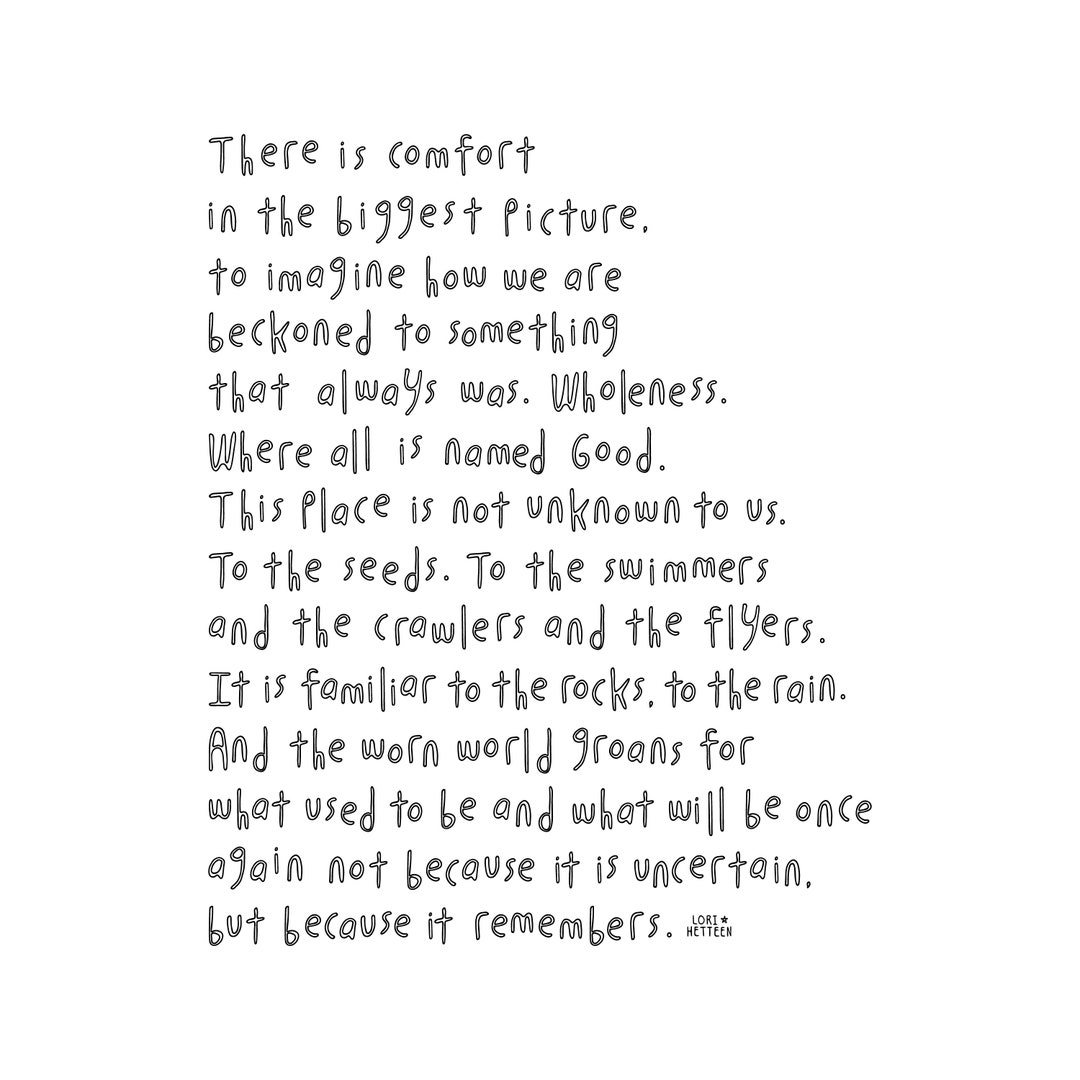 There is comfort
in the biggest picture,
to imagine how we are
beckoned to something
that always was. Wholeness.
Where all is named Good.
This place is not unknown to us.
To the seeds. To the swimmers
and the crawlers and the flyers.
It is familiar to the rocks, to the rain.
And the worn world groans for
what used to be and what will be once
again not because it is uncertain,
but because it remembers.
LORI ★
HETTEEN